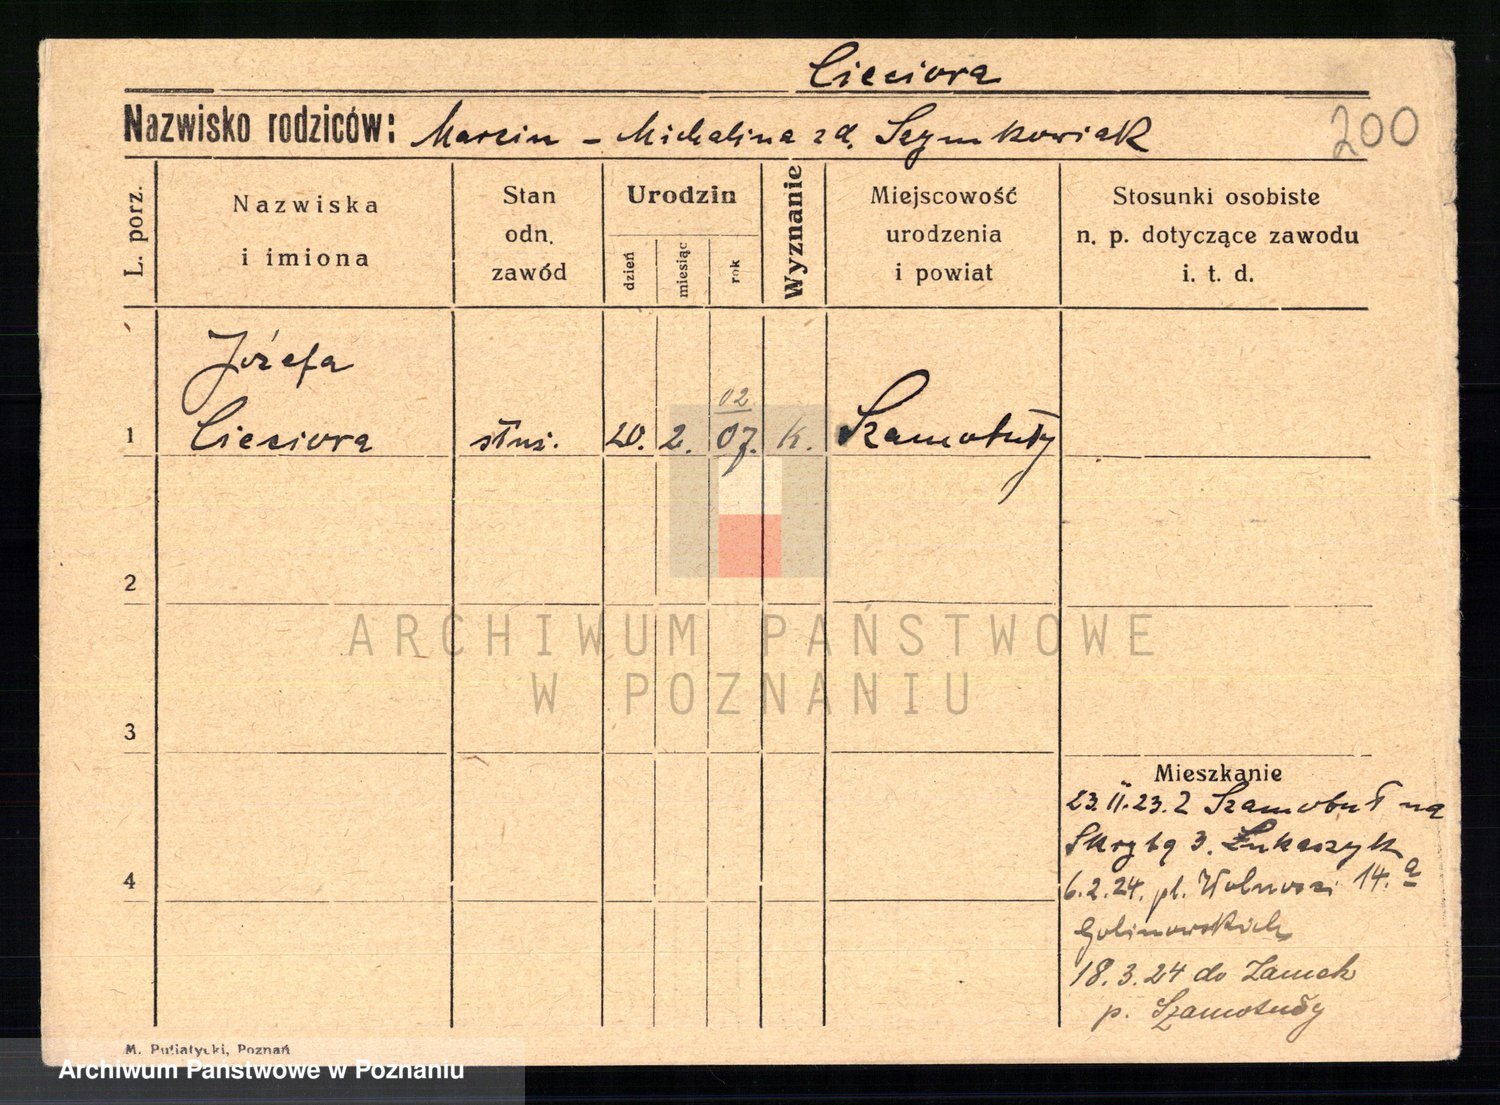 Cieciora
Nazwisko rodziców: Marcin - Michalina z d. Szymkowiak
200
L. porz.
Nazwiska
i imiona
Stan
odn.
zawód
Urodzin
dzień
miesiąc
rok
Wyznanie
Miejscowość
urodzenia
i powiat
Stosunki osobiste
n. p. dotyczące zawodu
i. t. d.
Józefa
02
1 Cieciora służ. 20. 2. 07. k. Szamotuły
2
ARCHIWUM PAŃSTWOWE
W POZNANIU
3
Mieszkanie
23.II.23. z Szamotuł na
3. Łukaszyk
4
6.2.24. pl. Wolności 14.a
Golinowskich
18.3.24 do Zamek
p. Szamotuły
M. Putiatycki, Poznań
Archiwum Państwowe w Poznaniu